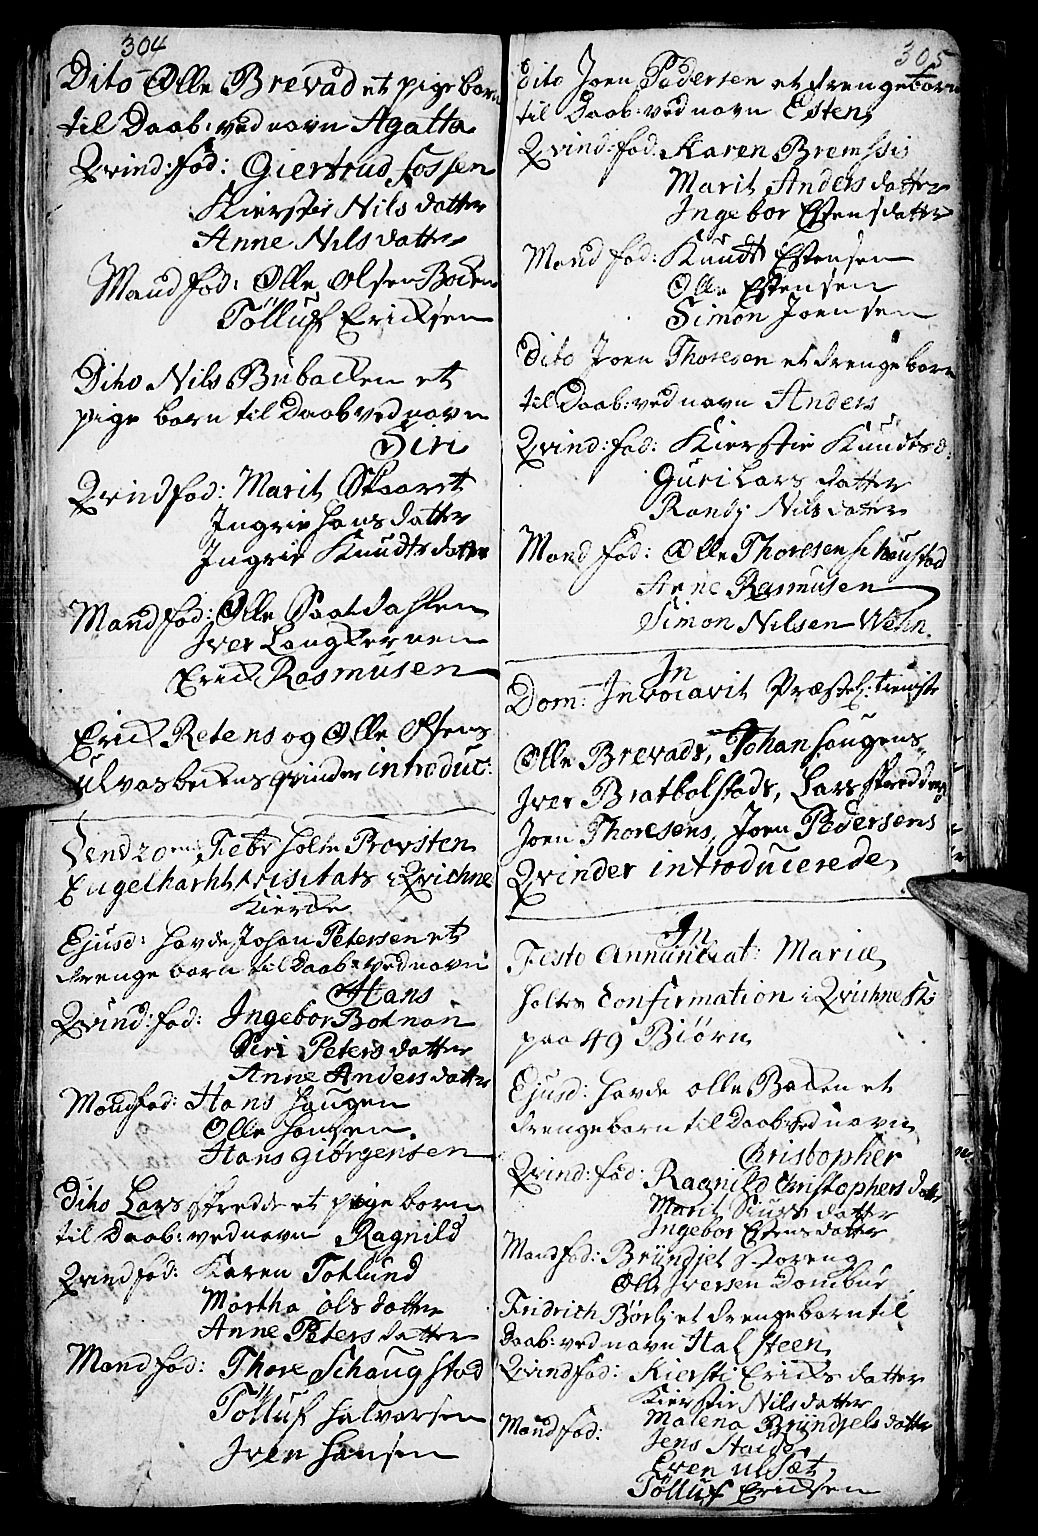 304
Dito Olle Brevad et pige barn
til Daab: ved navn Agatta
Qvind: fad: Giertrud Fossen
Kierstie Nils datter
Anne Nils datter
Mand fad: Olle Olsen Backen
Tölluf Ericksen
Dito Nils Bubacken et
pige barn til Daab ved navn
Siri
Qvind fad: Marit Skaaret
Ingrie Hans datter
Ingrie Knudts datter
Mand fad: Olle Saatdahlen
Iver Langkernen
Erick Rasmusen
Erick Retens og Olle Olsens
Ulvasbeckens qvinder introduc:
Dend 20 Febr holte Provsten
Engelharht visitats i Qvichne
Kierke
Ejusd: havde Johan Petersen et
drenge barn til Daab: ved navn
Hans
Qvind: fad: Ingebor Botnan
Siri Peters datter
Anne Anders datter
Mand fad: Hans Haugen
Olle Hansen
Hans Giørgensen
Dito Lars Stredde et pige barn
til Daab: ved navn Ragnild
Qvind fad: Karen Tohlund
Martha Ols datter
Anne Peters datter
Mand fad: Thore Schaugstad
Tölluf Halvorsen
Iven Hansen
305
Dito Joen Pedersen et drenge barn
til Daab: ved navn Esten
Qvind: fad: Karen Bremssis
Marit Anders datter
Ingebor Estens datter
Mand fad: Knudt Estensen
Olle Estensen
Simon Joensen
Dito Joen Thoresen et drenge barn
til Daab: ved navn Anders
Qvind: fad: Kierstie Knudts d:
Guri Lars datter
Randj Nils datter
Mand fad: Olle Thoresen Schaustad
Arne Rasmusen
Simon Nilsen Wehn
In
Dom: Invocavit Præstel: tieniste
Olle Brevads, Johan Haugens
Iver Bratbolstads, Lars Streddens
Joen Thoresens, Joen Pedersens
Qvinder introducerede
In
Festo Annunciat: Mariæ
holtes Confirmation i Qvichne K:
paa 49 Biørn
Ejusd: havde Olle Backen et
drenge barn til Daab: ved navn
Christopher
Qvind: fad: Ragnild Christophers datter
Marit Siurs datter
Ingebor Estens datter
Mand fad: Brundjel Storeng
Olle Iversen Dombur
Fridrich Børlj et drenge barn til
Daab: ved navn Halsteen
Qvind fad: Kiersti Ericks datter
Kierstie Nils datter
Malena Brundjels datter
Mand fad: Jens Staids
Even Ulsæt
Tölluf Ericksen